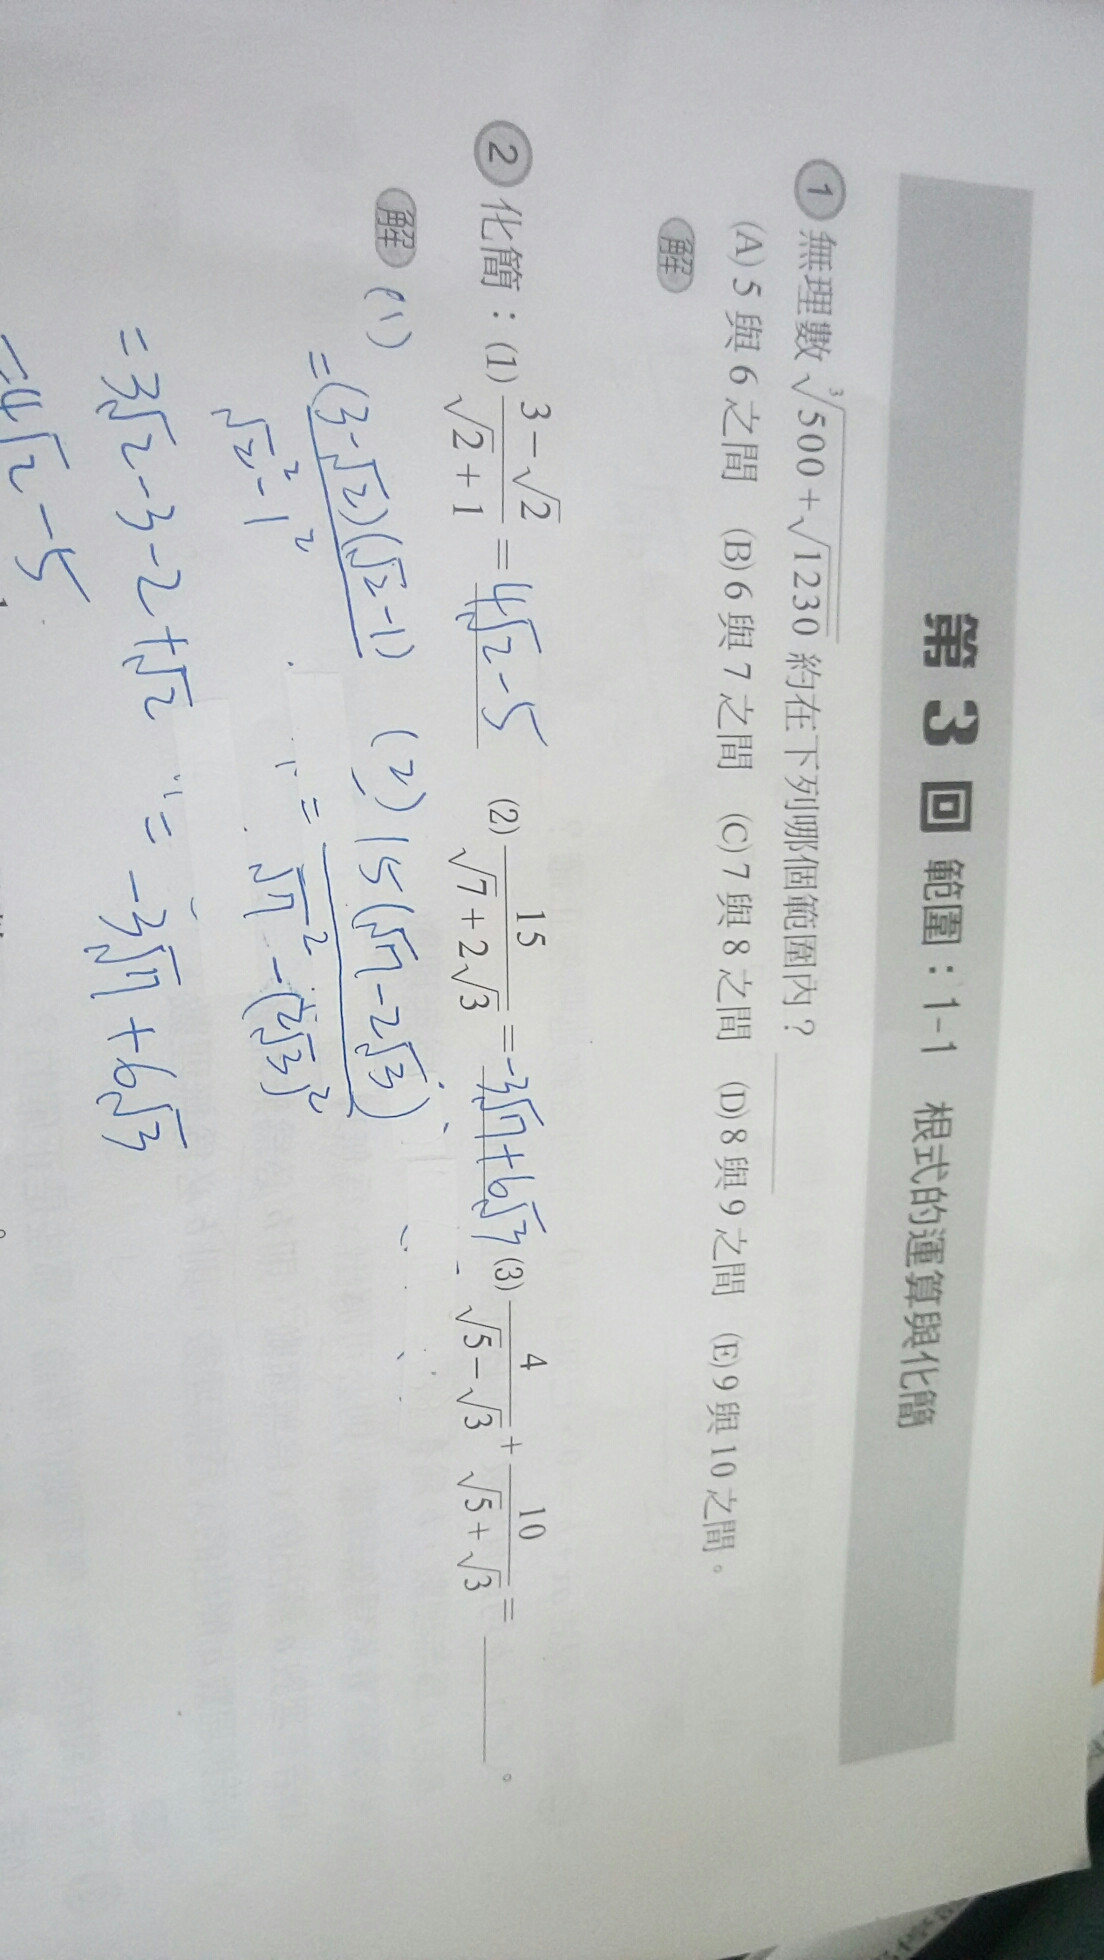 第 3 回 範圍：1-1 根式的運算與化簡
① 無理數 ∛(500+√1230) 約在下列哪個範圍內？
(A) 5 與 6 之間 (B) 6 與 7 之間 (C) 7 與 8 之間 (D) 8 與 9 之間 (E) 9 與 10 之間。
解
② 化簡：(1) (3-√2)/(√2+1) = 4√2-5 (2) 15/(√7+2√3) = -3√7+6√3 (3) 4/(√5-√3) + 10/(√5+√3) = 。
解 (1)
= (3-√2)(√2-1)
√2²-1²
= 3√2-3-2+√2
= 4√2-5
(2) 15(√7-2√3)
= √7²-(2√3)²
= -3√7+6√3